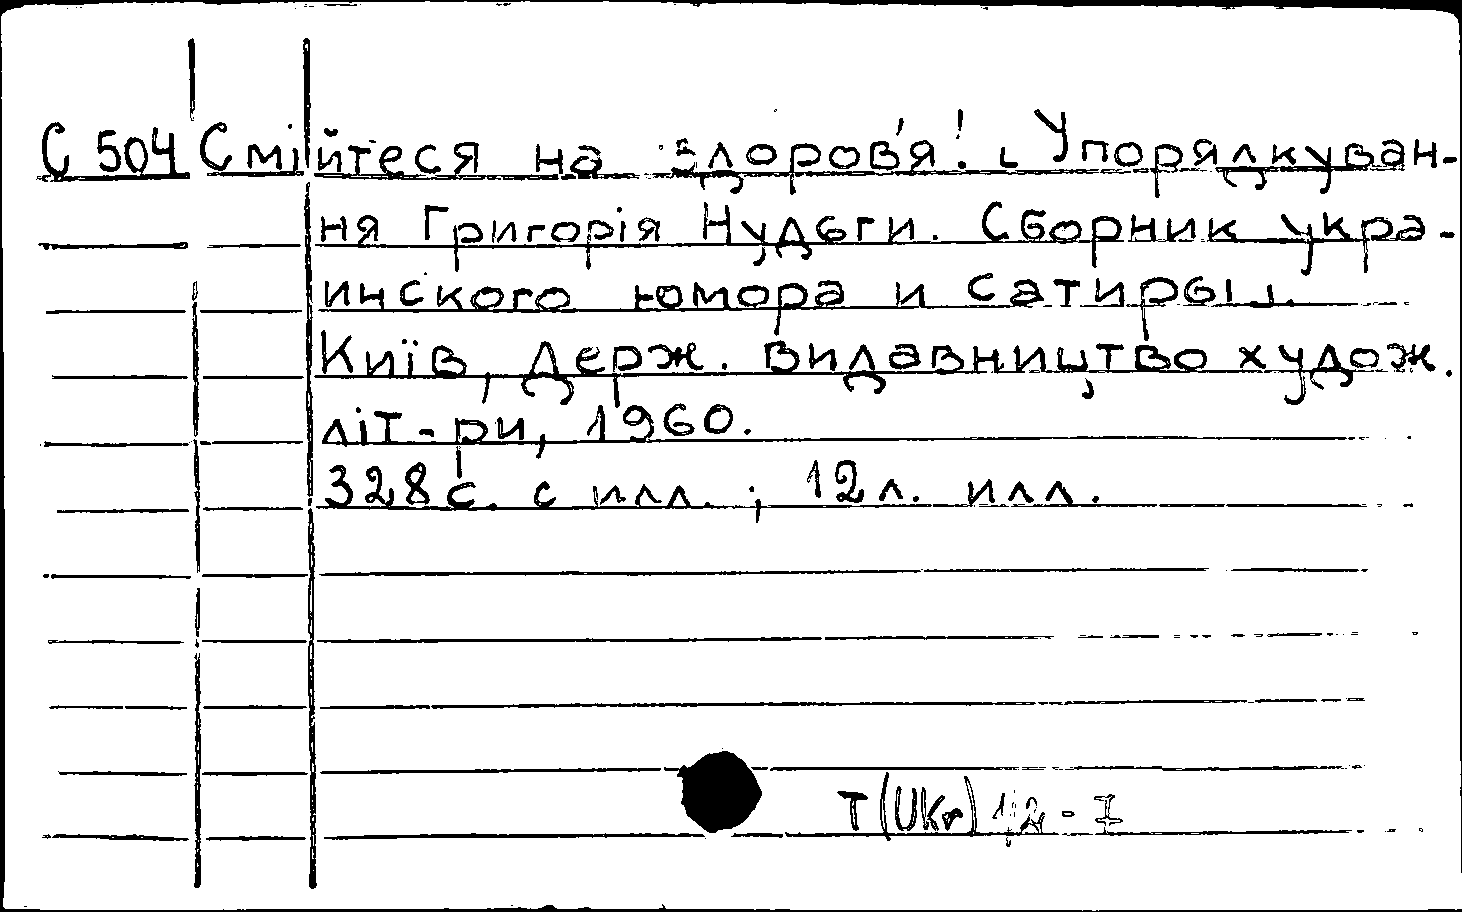 С 504 Смійтеся на здоров'я! [Упорядкуван-
ня Григорія Нудьги. Сборник укра-
инского юмора и сатиры].
Київ, Держ. видавництво худож.
літ-ри, 1960.
328 с. с илл.; 12 л. илл.
T(Ukr)